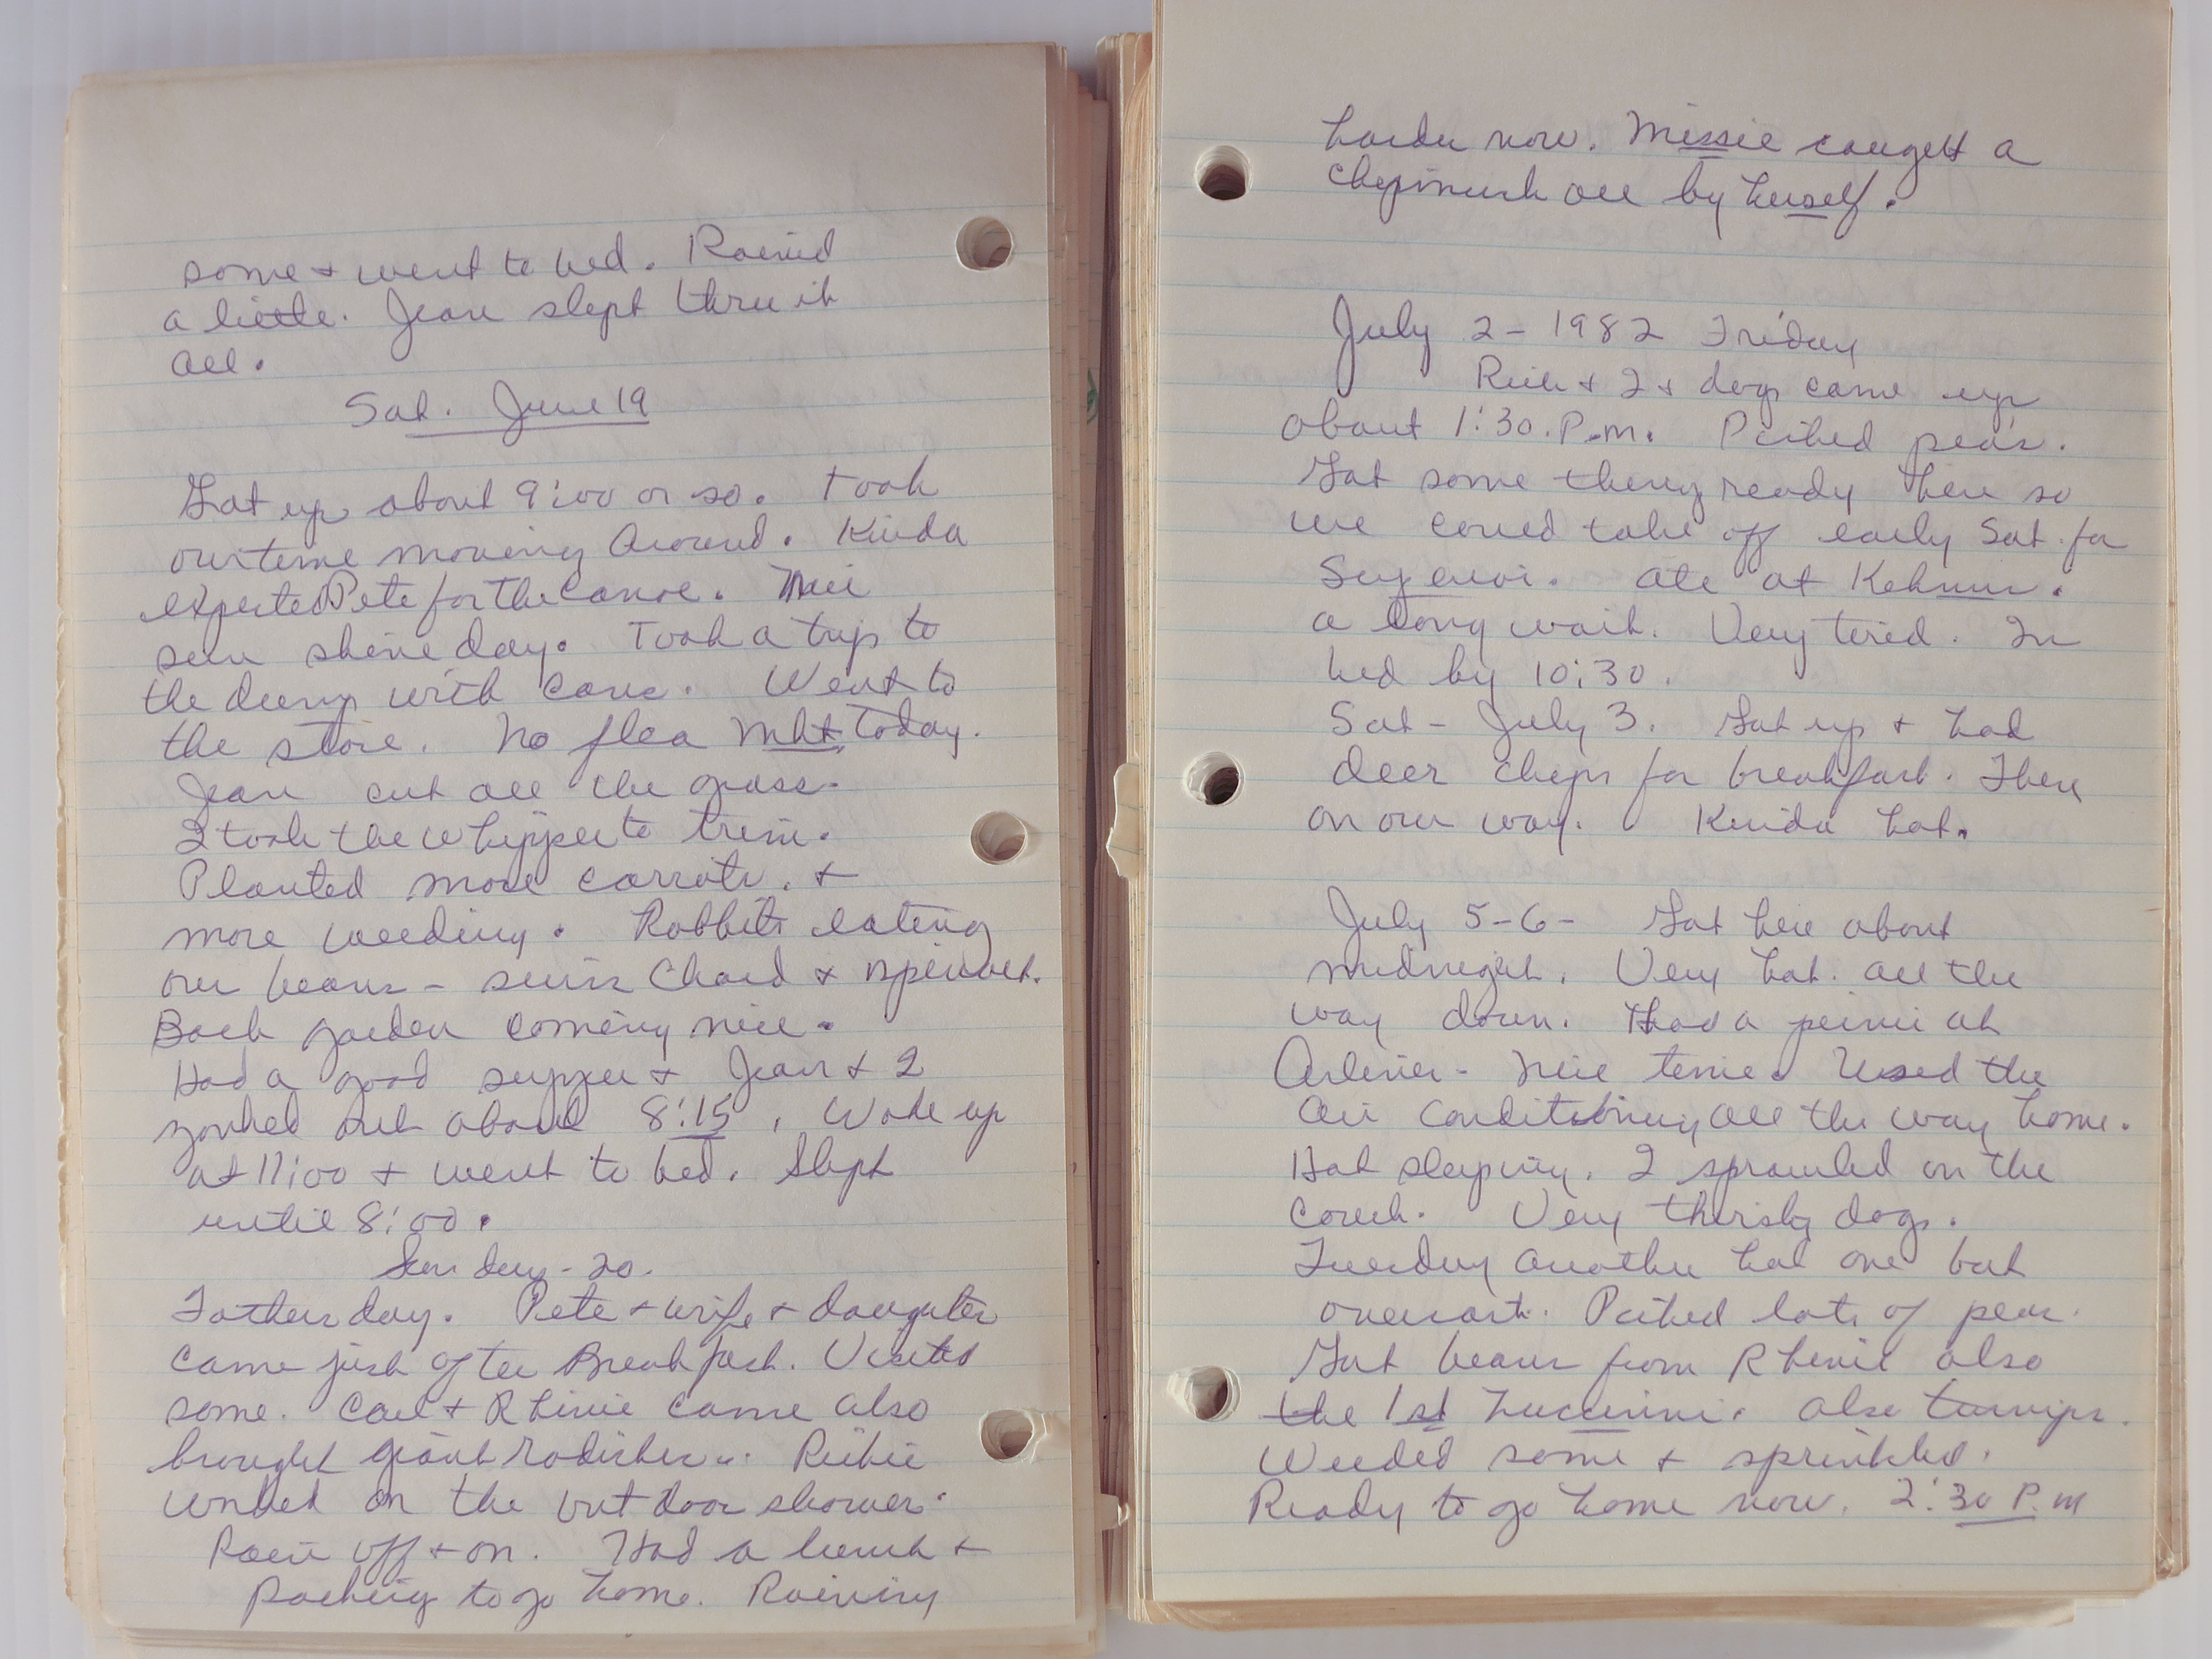 some + went to bed. Rained
a little. Jean slept thru it
all.
Sat. June 19
Got up about 9:00 or so. Took
our time moving Around. Kinda
expected Pete for the Canoe. Nice
sun shine day. Took a trip to
the dump with cans. Went to
the store. No flea Mkt. Today.
Jean cut all the grass.
I took the whipper to trim.
Planted more carrots. +
more weeding. Rabbits eating
our beans - swiss Chard + spinach.
Back garden coming nice.
Had a good supper + Jean + I
zonked out about 8:15. Woke up
at 11:00 + went to bed. Slept
until 8:00.
Sunday - 20.
Fathers day. Pete + wife + daughter
came just after Breakfast. Visited
some. Carl + Rhinie came also
brought giant radishes. Richie
worked on the out door shower.
Rain off + on. Had a lunch +
Packing to go home. Raining
harder now. Missie caught a
chipmunk all by herself.
July 2 - 1982 Friday
Rich + I + dogs came up
about 1:30. P.m. Picked peas.
Got some things ready here so
we could take off early Sat. for
ate at
a long wait. Very tired. In
bed by 10:30.
Sat - July 3. Got up + had
deer chops for breakfast. Then
on our way. Kinda hot.
July 5-6- Got here about
midnight. Very hot. all the
way down. Had a picnic at
Arlines - Nice time. Used the
air conditioning all the way home.
Hot sleeping. I sprawled on the
couch. Very thirsty dogs.
Tuesday another hot one but
overcast. Picked lots of peas.
Got beans from Rhinie also
the 1st Zuccinni. also turnips.
Weeded some + sprinkled.
Ready to go home now. 2:30 P.M